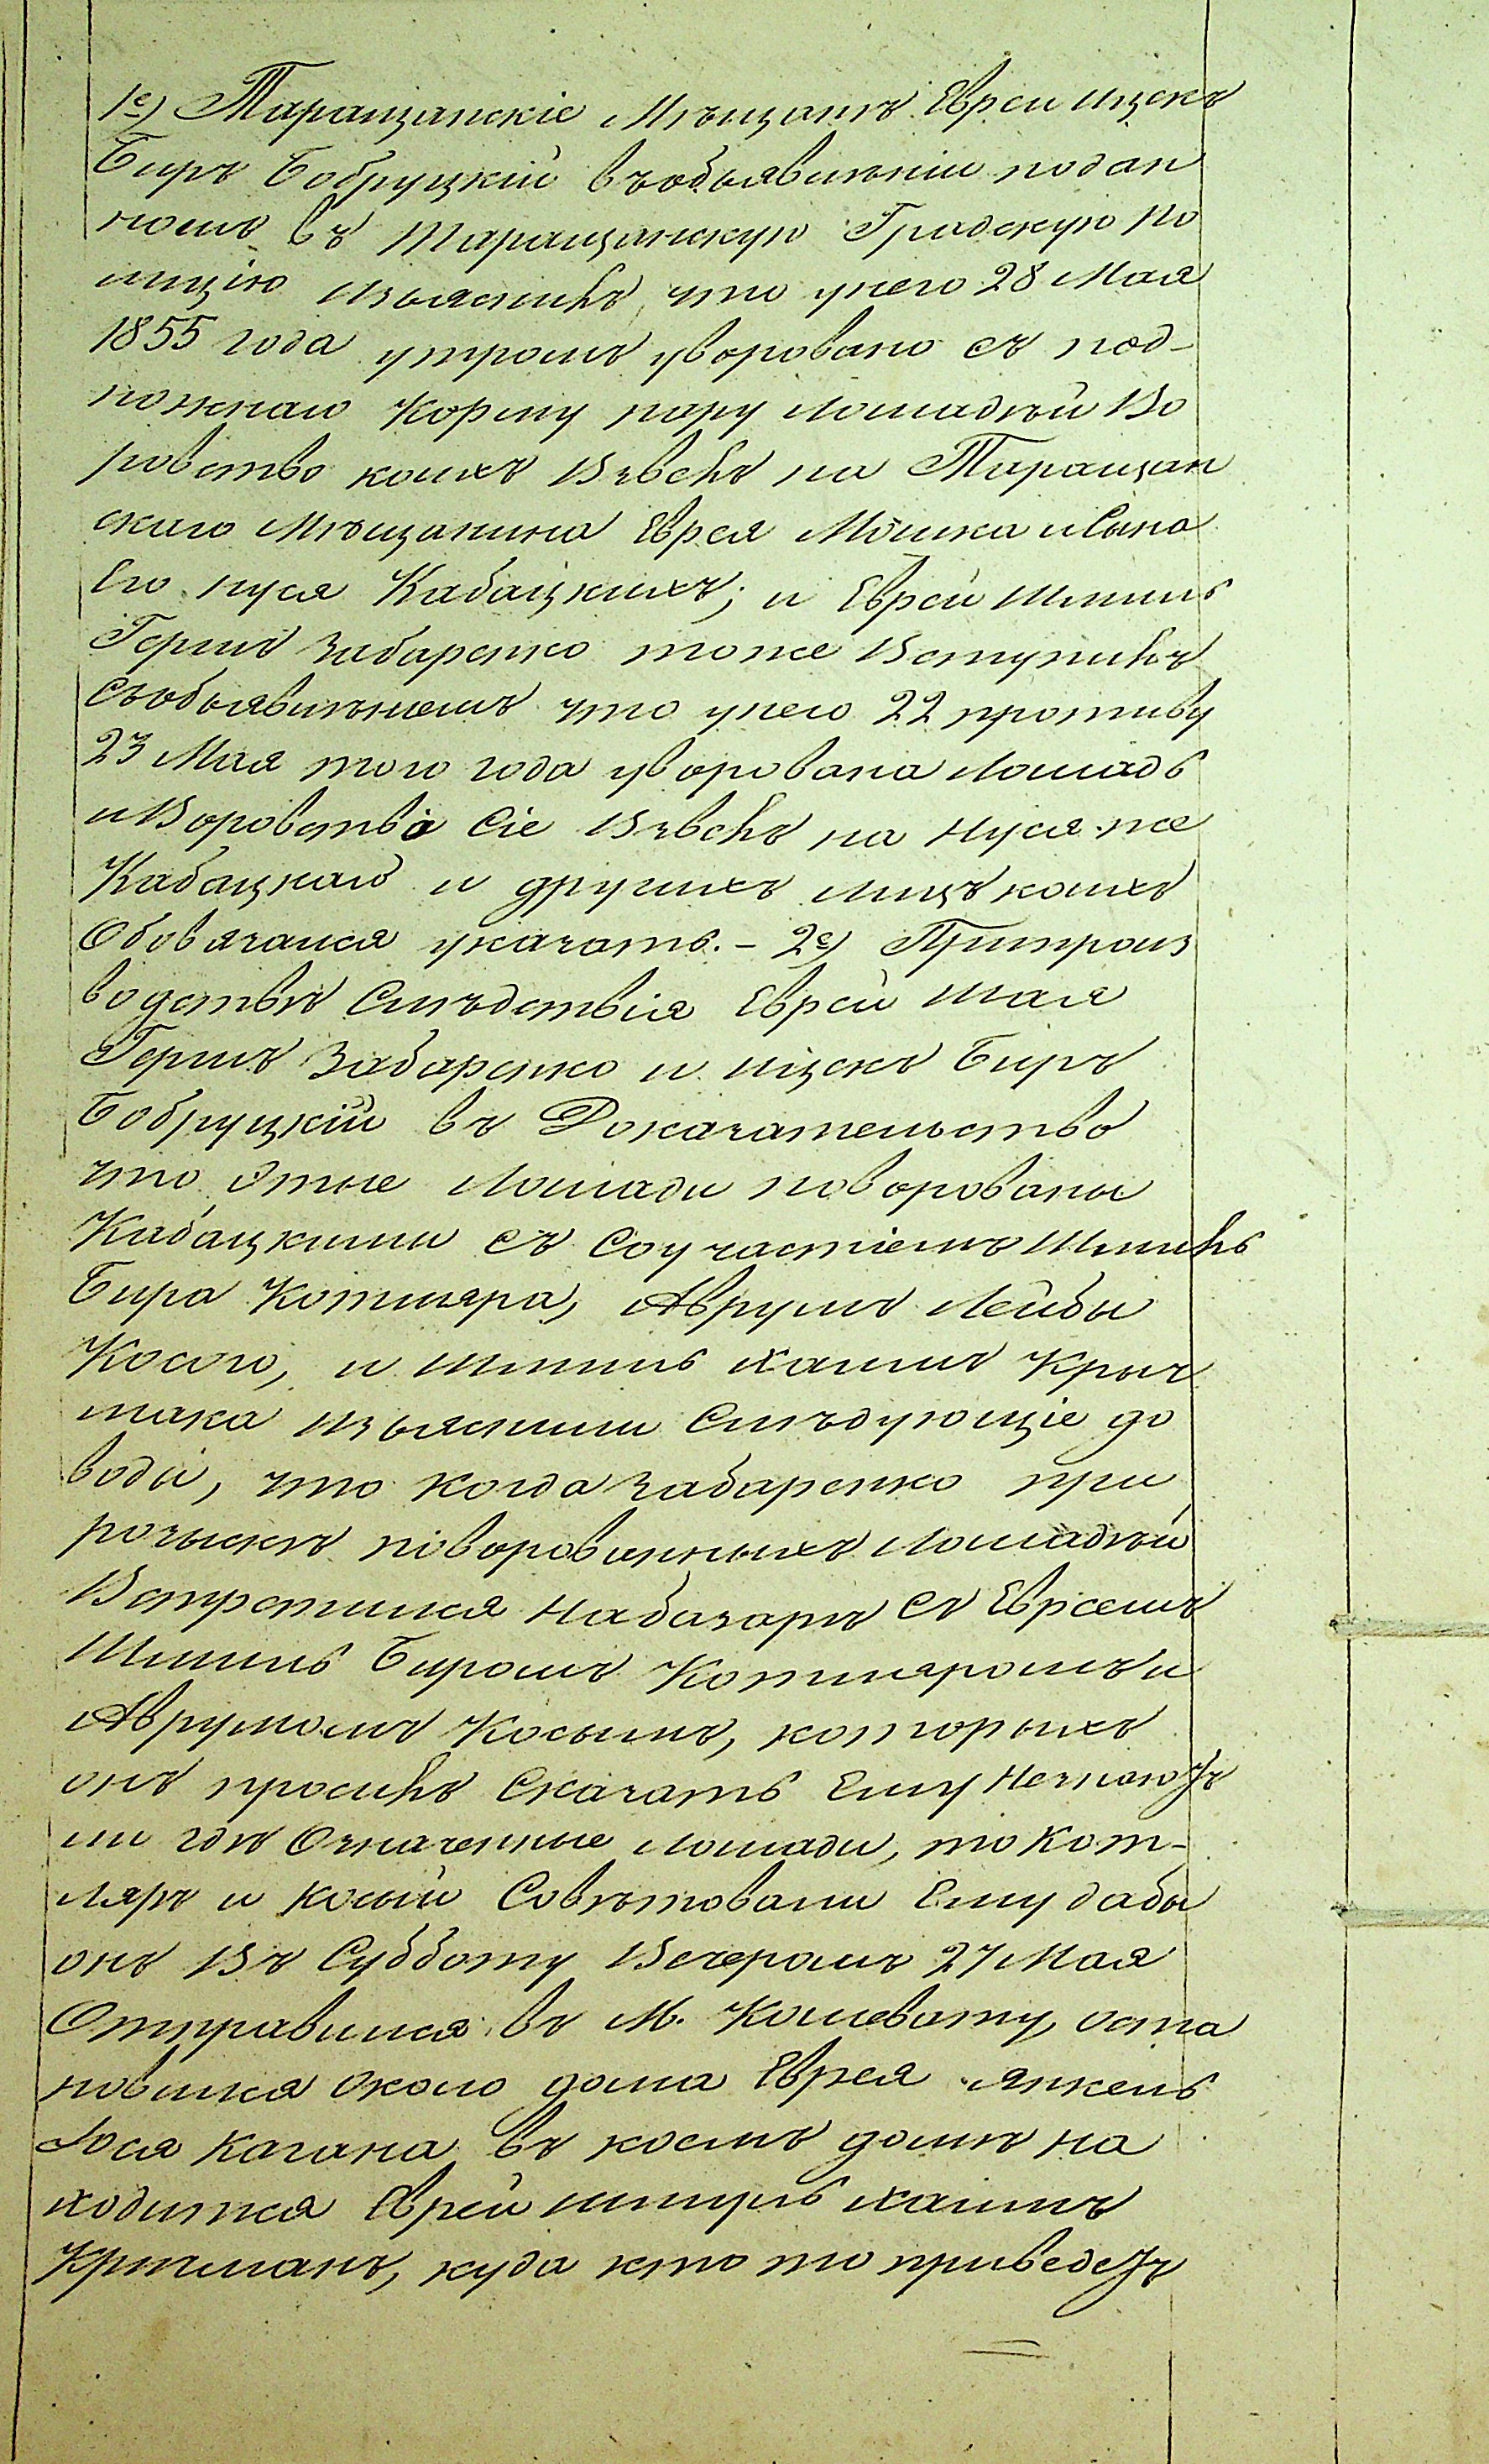 1е) Таращанскіе Мѣщанъ Евреи Ицекъ
Биръ Бобруцкій въобьявленіи подан
номъ въ Таращанскую Градскую по
лицію изьяснилъ, что унего 28 Мая
1855 года утромъ уворовано съ под-
ножнаго корму пару лошадѣй во
ровство коихъ взвелъ на Таращан
скаго Мѣщанина Еврея Мошка иСына
Его Нуся Кабацкихъ; и Еврей Шмиль
Гершъ Забаренко тоже вступилъ
Съобьявленіемъ что унего 22 противу
23 Мая того года уворована лошадь
и Воровство Сіе взвелъ на Нуся-же
Кабацкаго и другихъ лицъ коихъ
Обовязался указать. - 2е) Припроиз
водствѣ Слѣдствія Еврей Шая
Гершъ Забаренко и Ицекъ Биръ
Бобруцкій въ Доказательство
что Этые Лошади поворованы
Кабацкими съ Соучастіемъ Шмиль
Бира Котляра, Аврумъ Лейбы
Косого, и Шмиль Хаимъ Крыч
мака изьяснили Слѣдующіе до
воды, что когда Забаренко при
розыскѣ поворованныхъ Лошадѣй
Встретился Набазарѣ съ Евреемъ
Шмиль Биромъ Котляромъ и
Аврумомъ Косымъ, которыхъ
онъ просилъ Сказать Ему Незнаютъ
ли гдѣ Означенные лошади, то Кот-
ляръ и Косый Совѣтовали Ему дабы
онъ въ Субботу Вечеромъ 27 Мая
Отправился въ М. Кошевату, оста
новился Около дома Еврея Янкель
Іося Кагана въ коемъ домѣ на
ходится Еврей Шмуль Хаимъ
Кричманъ, куда кто то приведетъ